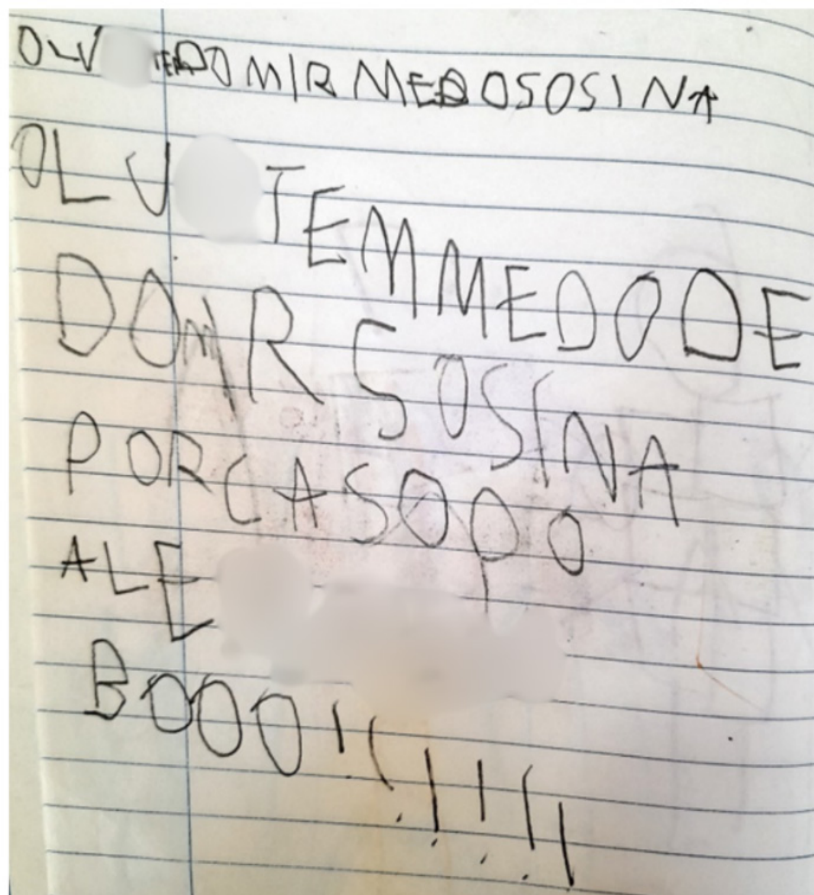 OLV DOMIR MEDOSOSINA
OLV TEMMEDODE
DOMR SOSINA
PORCASOPO
ALE
BOOO!!!!!!